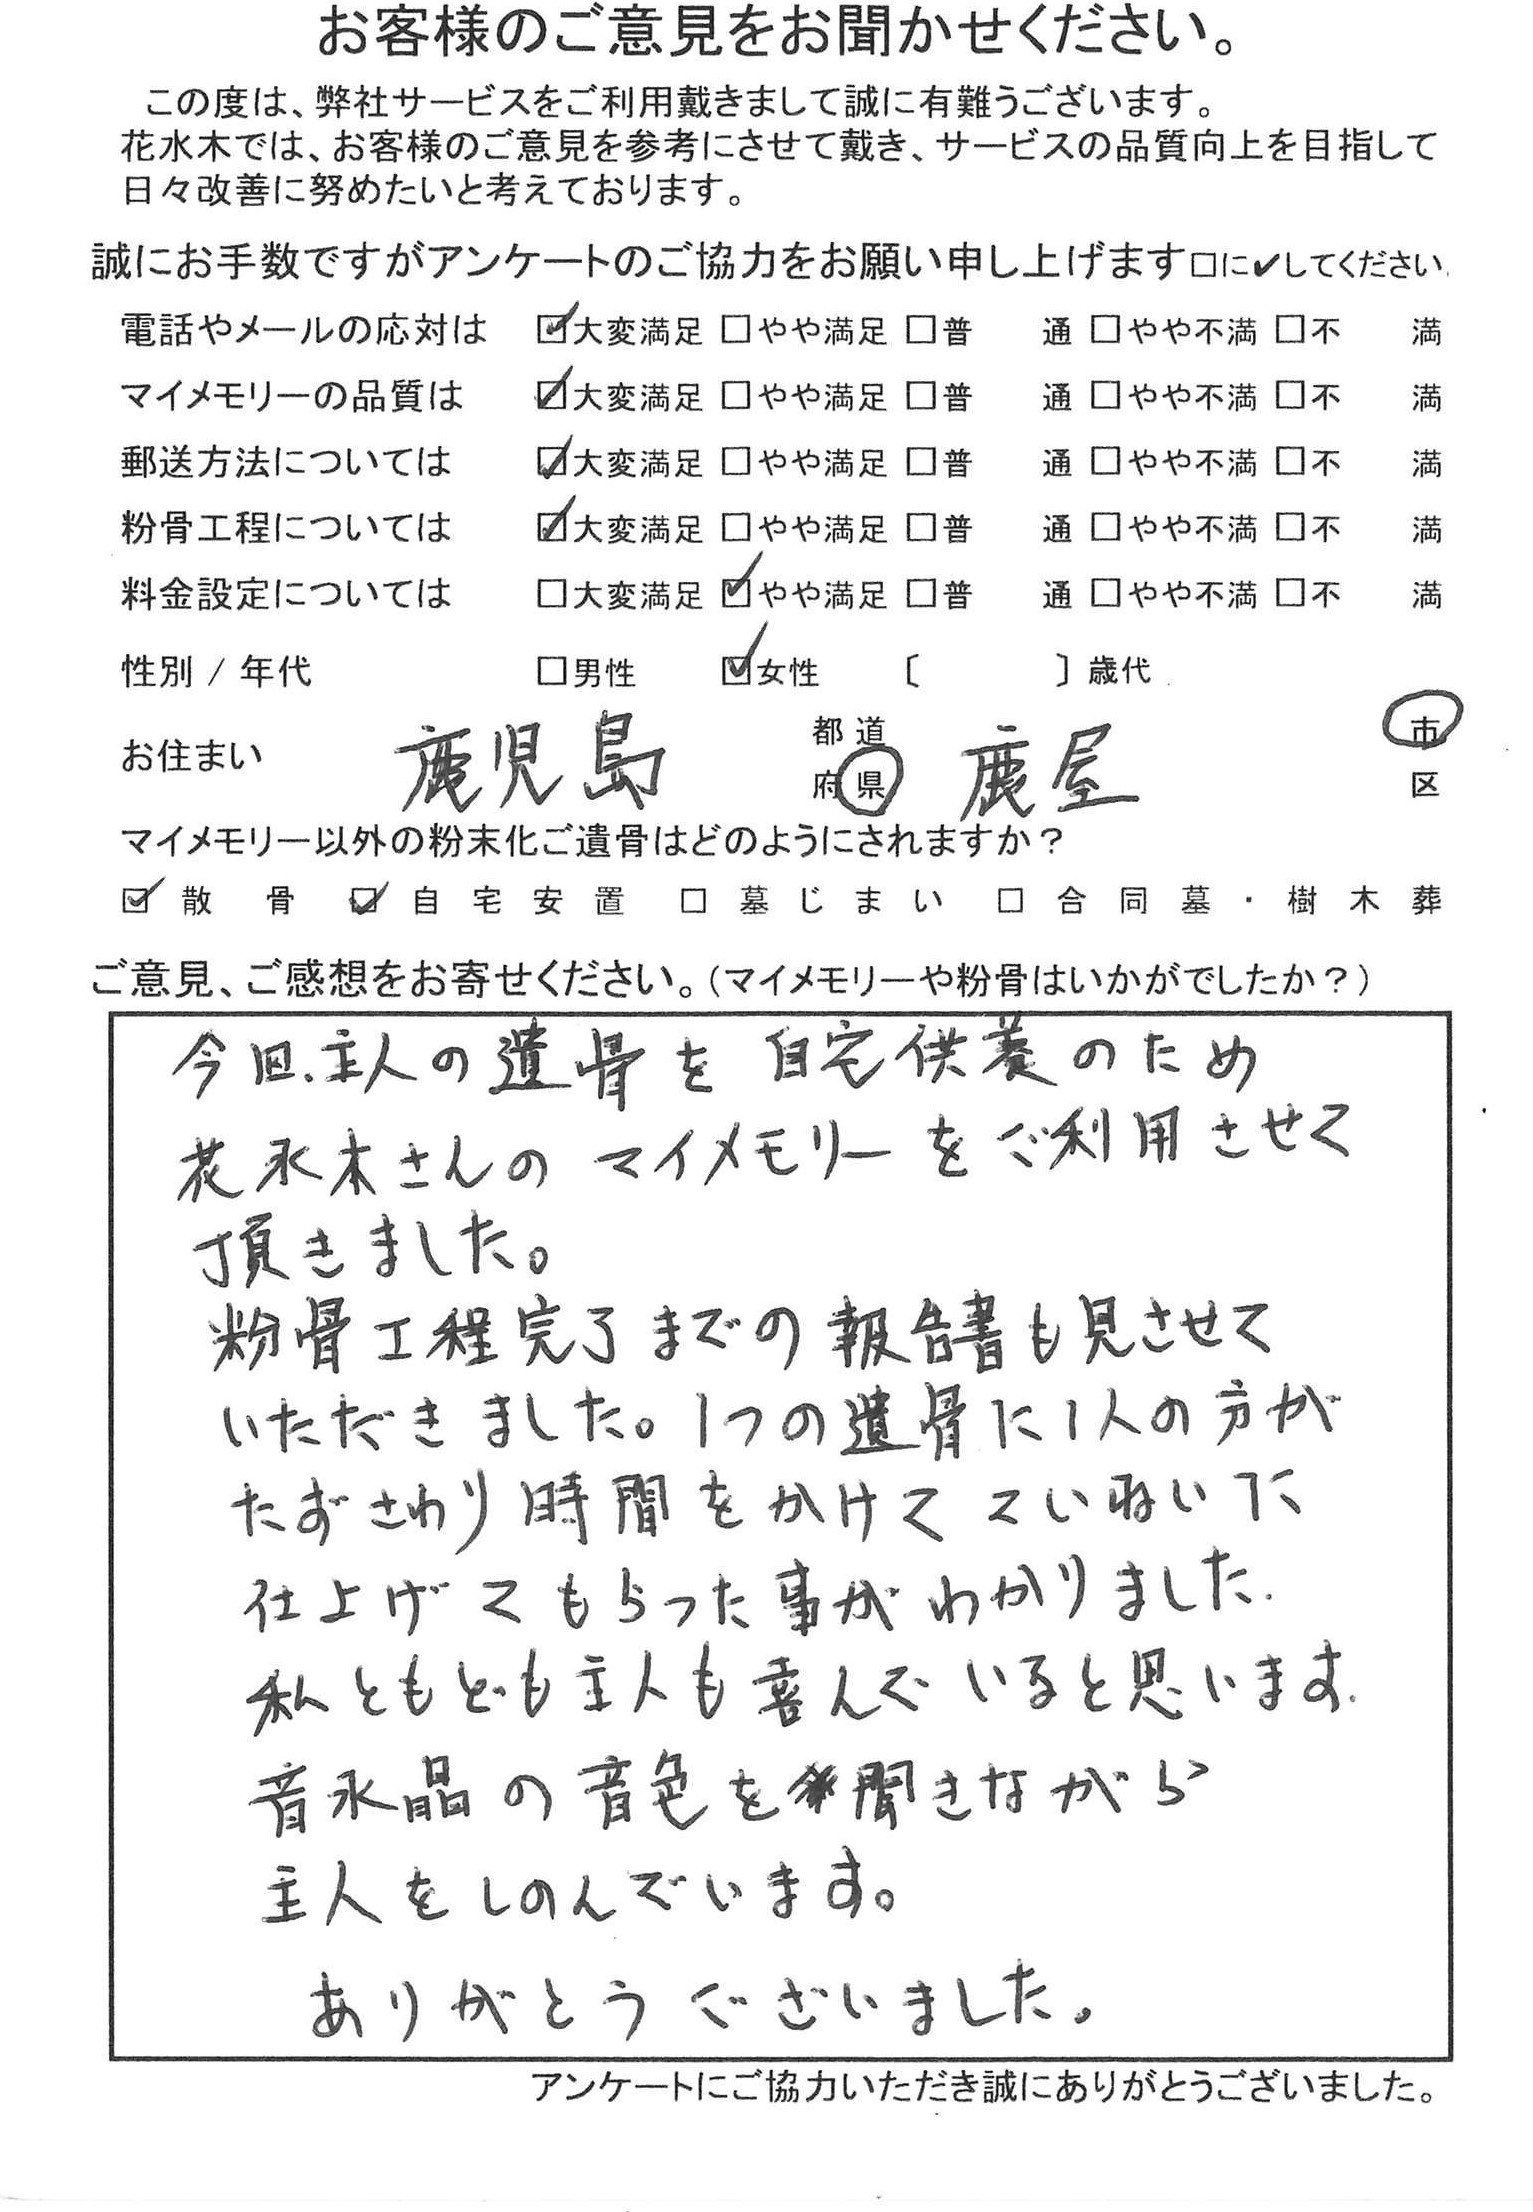 お客様のご意見をお聞かせください。
この度は、弊社サービスをご利用戴きまして誠に有難うございます。
花水木では、お客様のご意見を参考にさせて戴き、サービスの品質向上を目指して
日々改善に努めたいと考えております。
誠にお手数ですがアンケートのご協力をお願い申し上げます□に✔してください。
電話やメールの応対は ☑大変満足 □やや満足 □普 通 □やや不満 □不 満
マイメモリーの品質は ☑大変満足 □やや満足 □普 通 □やや不満 □不 満
郵送方法については ☑大変満足 □やや満足 □普 通 □やや不満 □不 満
粉骨工程については ☑大変満足 □やや満足 □普 通 □やや不満 □不 満
料金設定については □大変満足 ☑やや満足 □普 通 □やや不満 □不 満
性別 / 年代 □男性 ☑女性 〔 〕歳代
お住まい 鹿児島 都道府県 鹿屋 市区
マイメモリー以外の粉末化ご遺骨はどのようにされますか？
☑散骨 ☑自宅安置 □墓じまい □合同墓・樹木葬
ご意見、ご感想をお寄せください。（マイメモリーや粉骨はいかがでしたか？）
今回、主人の遺骨を自宅供養のため
花水木さんのマイメモリーをご利用させて
頂きました。
粉骨工程完了までの報告書も見させて
いただきました。1つの遺骨に1人の方が
たずさわり時間をかけてていねいに
仕上げてもらった事がわかりました.
私ともども主人も喜んでいると思います.
音水晶の音色を聞きながら
主人をしのんでいます。
ありがとうございました。
アンケートにご協力いただき誠にありがとうございました。